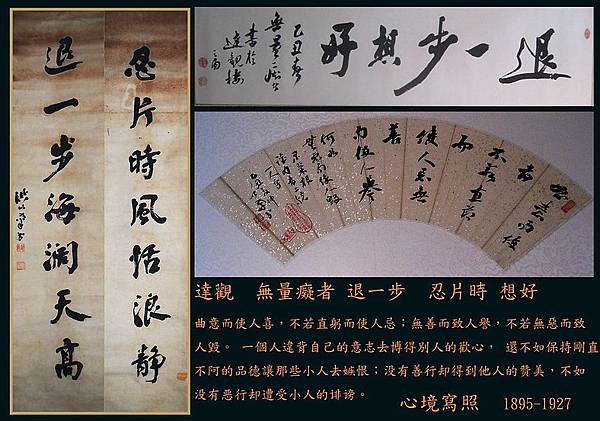 忍片時風恬浪静
退一步海濶天高
退一步想好
書於
達觀樓
不若直躬
而
使人忌無
善
而致人譽
達觀　無量癡者 退一步　忍片時 想好
曲意而使人喜，不若直躬而使人忌；無善而致人譽，不若無惡而致
人毀。 一個人違背自己的意志去博得別人的歡心， 還不如保持剛直
不阿的品德讓那些小人去嫉恨；没有善行却得到他人的贊美，不如
没有惡行却遭受小人的誹謗。
心境寫照　1895-1927